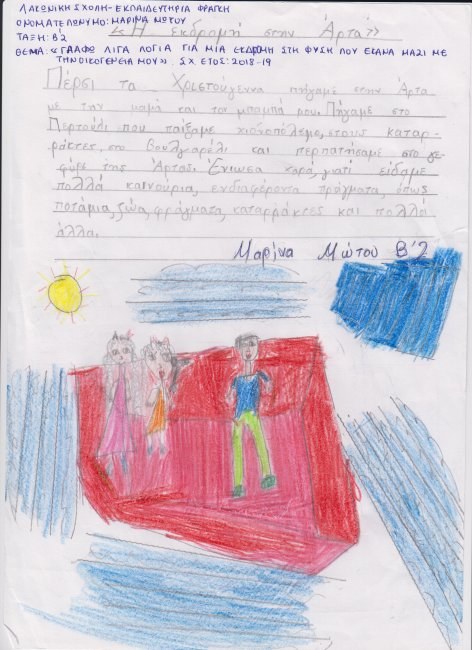 ΛΑΚΩΝΙΚΗ ΣΧΟΛΗ-ΕΚΠΑΙΔΕΥΤΗΡΙΑ ΦΡΑΓΚΗ
ΟΝΟΜΑΤΕΠΩΝΥΜΟ: ΜΑΡΙΝΑ ΜΩΤΟΥ
ΤΑΞΗ: Β2
«Η εκδρομή στην Άρτα»
ΘΕΜΑ: «ΓΡΑΦΩ ΛΙΓΑ ΛΟΓΙΑ ΓΙΑ ΜΙΑ ΕΚΔΡΟΜΗ ΣΤΗ ΦΥΣΗ ΠΟΥ ΕΚΑΝΑ ΜΑΖΙ ΜΕ
ΤΗΝ ΟΙΚΟΓΕΝΕΙΑ ΜΟΥ» . ΣΧ. ΕΤΟΣ: 2018-19
Πέρσι τα Χριστούγεννα πήγαμε στην Άρτα
με την μαμά και το μπαμπά μου. Πήγαμε στο
Περτούλι που παίξαμε χιονοπόλεμο, στους καταρ-
ράκτες, στο Βουλγαρέλι και περπατήσαμε στο γε-
φύρι της Άρτας. Ένιωσα χαρά, γιατί είδαμε
πολλά καινούρια, ενδιαφέροντα πράγματα, όπως
ποτάμια, ζώα, φράγματα, καταρράκτες και πολλά
άλλα.
Μαρίνα Μώτου Β'2